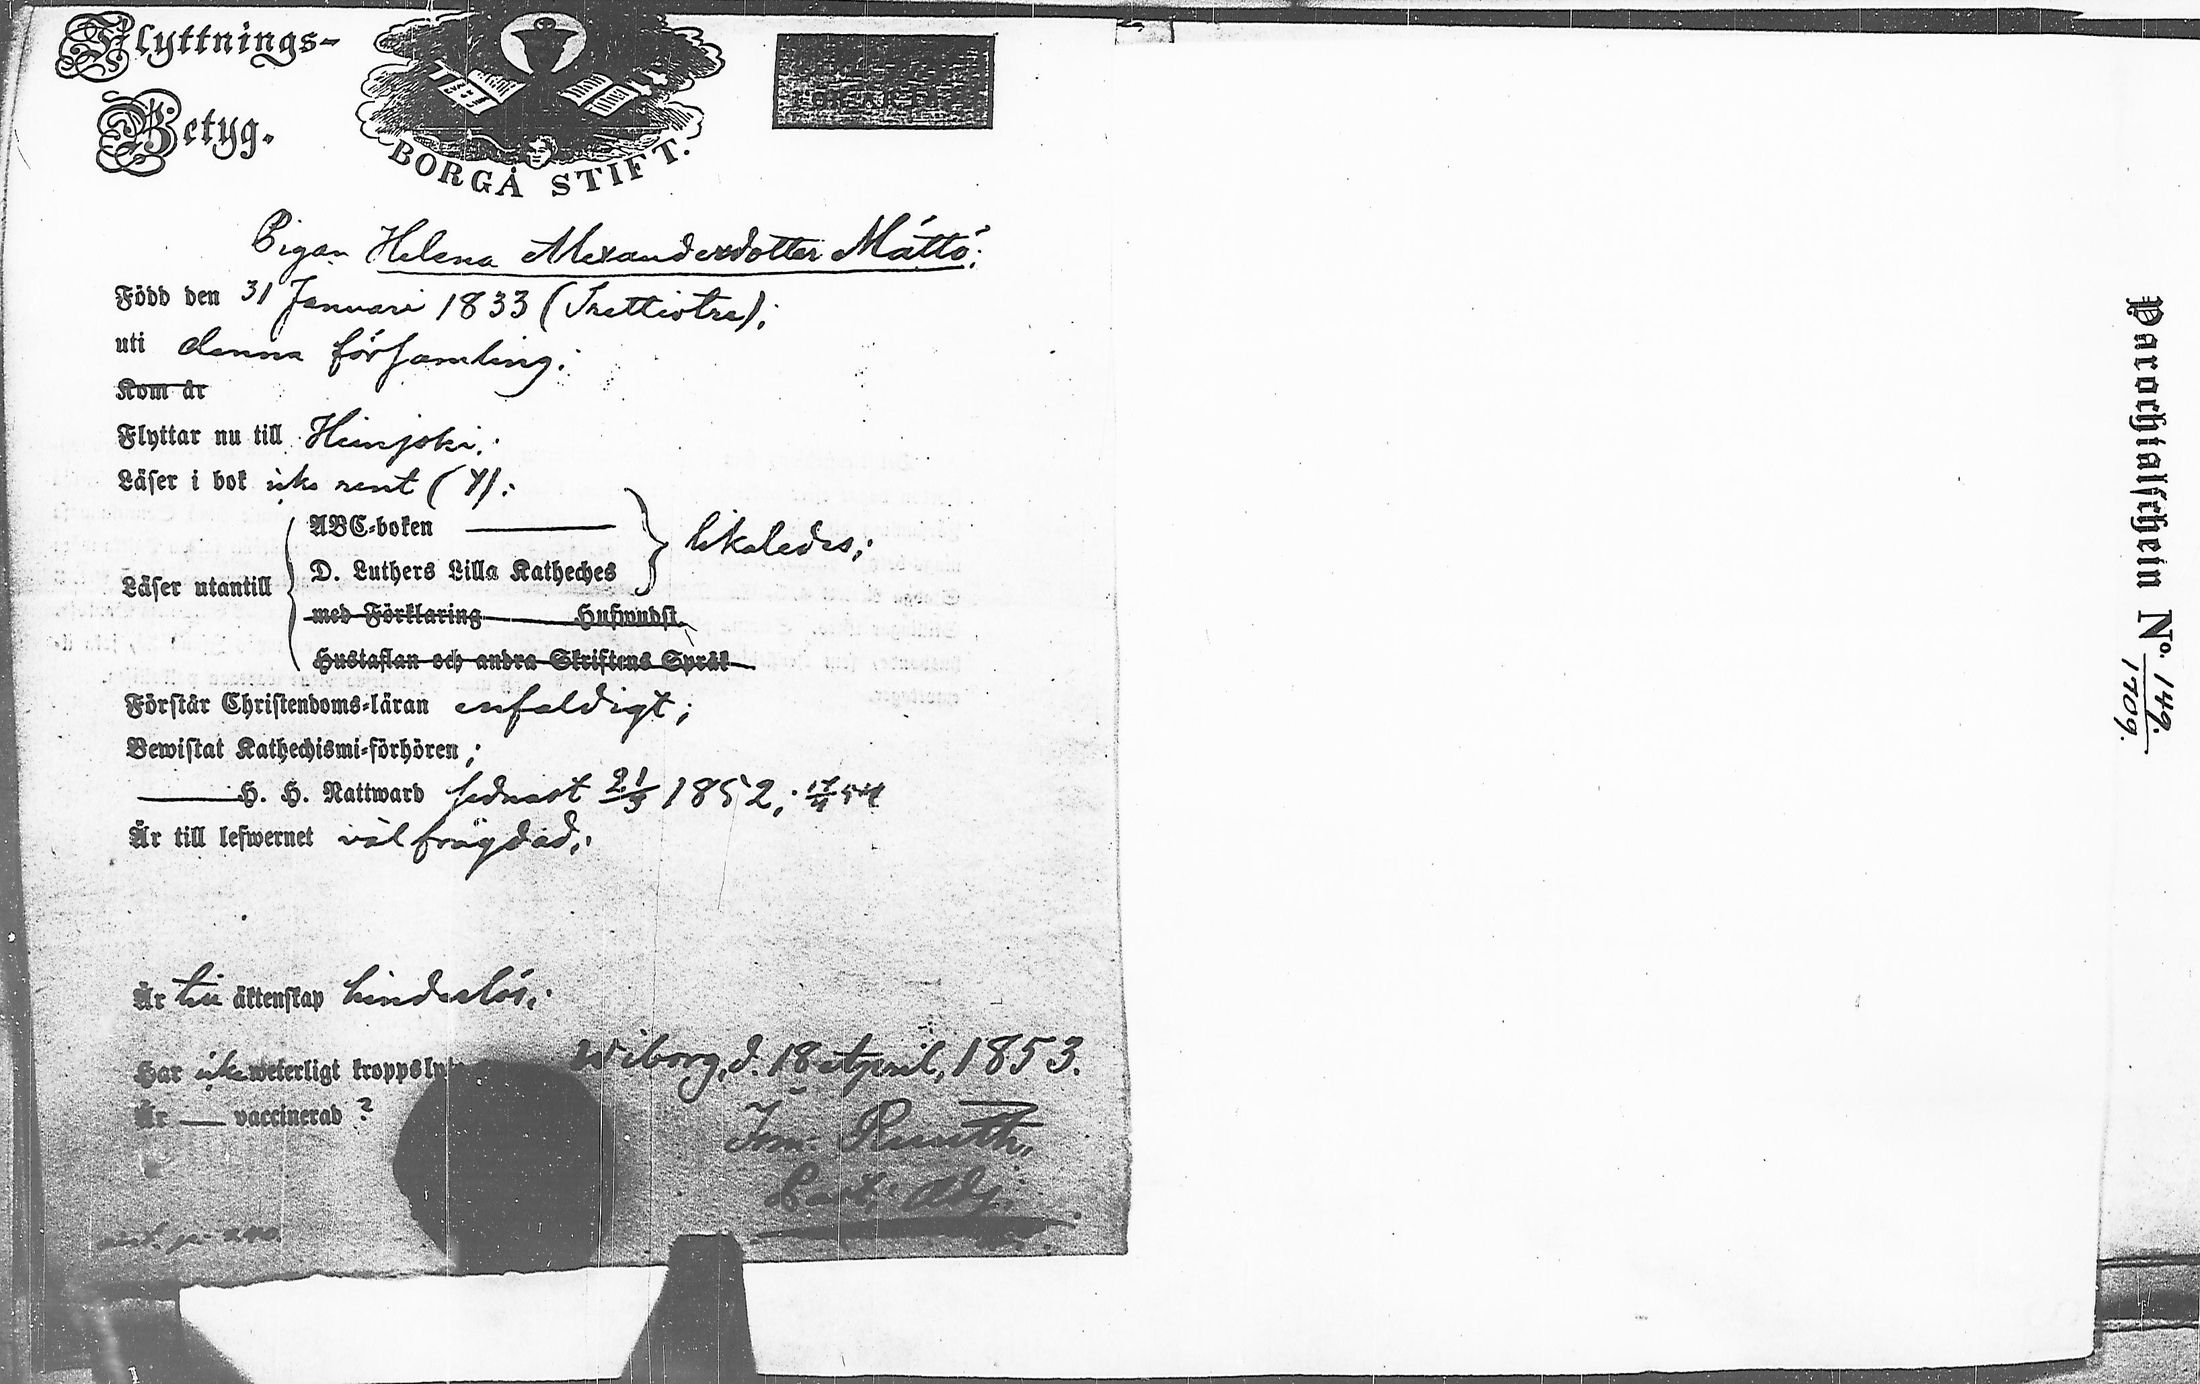 Flyttnings-
Betyg.
BORGÅ STIFT.
Pigan Helena Alexandersdotter Mättö;
Född den 31 Januari 1833 (Trettiotre);
uti denna församling;
Kom år
Flyttar nu till Heinjoki;
Läser i bok icke rent (Y);
ABC-boken
Läser utantill
D. Luthers Lilla Katheches
likaledes;
med Förklaring Hufwudst.
Hustaflan och andra Skriftens Språk
Förstår Christendoms-läran enfaldigt;
Bewistat Kathechismi-förhören;
H. H. Nattward sednast 21/3 1852; 17/4 54
Är till lefwernet välfrägdad;
Är till äktenskap hinderlös;
Har icke weterligt kroppslyte
Wiborg, d. 18 April, 1853.
Är — vaccinerad?
Parochialschein No. 149. 1709.